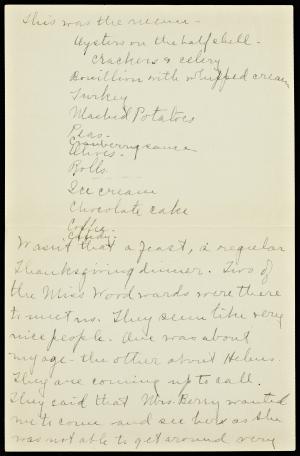 This was the menu -
Oysters on the half shell -
Crackers & celery
Bouillion with whipped cream
Turkey
Mashed Potatoes
Peas -
Cranberry sauce
Olives -
Rolls
Ice cream
Chocolate cake
Coffee -
Candy -
Wasn't that a feast, a regular
Thanksgiving dinner. Two of
the Miss Woodwards were there
to meet us. They seem like very
nice people. One was about
my age - the other about Helens.
They are coming up to call.
They said that Mrs. Berry wanted
me to come and see her as she
was not able to get around very